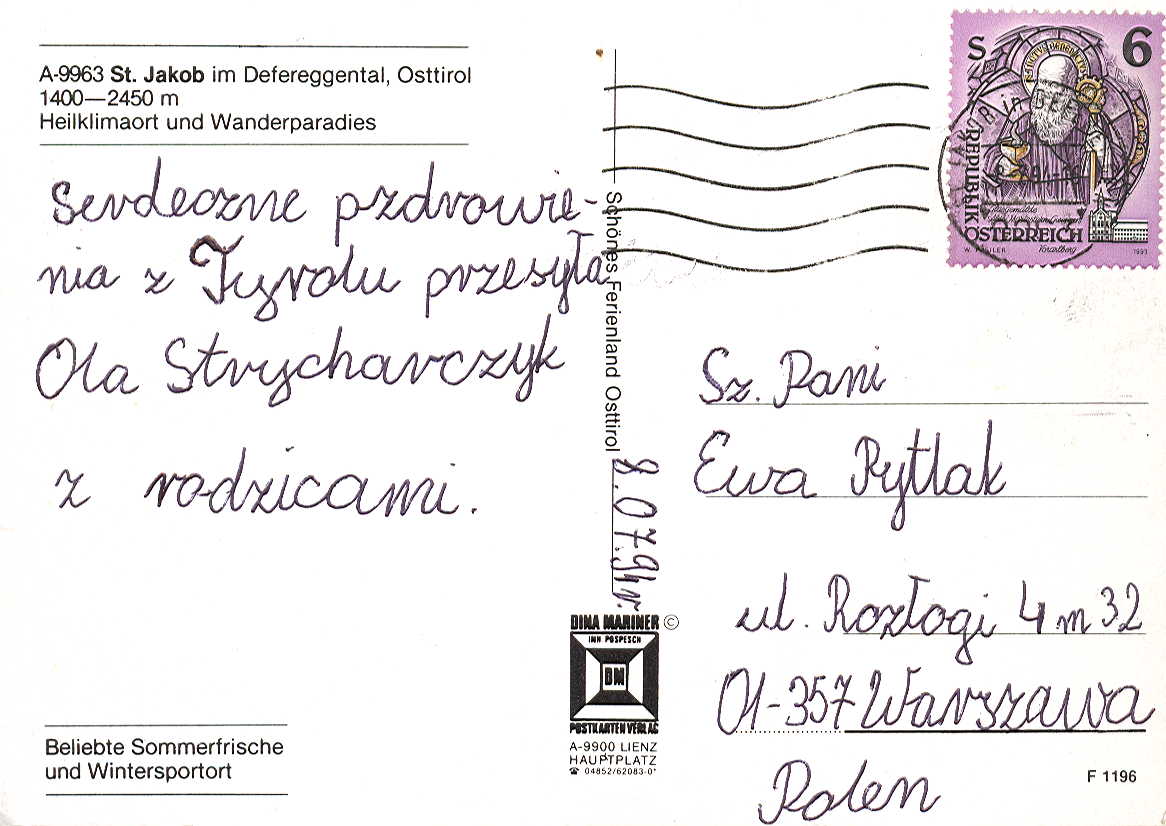 A-9963 St. Jakob im Defereggental, Osttirol
1400—2450 m
Heilklimaort und Wanderparadies
Serdeczne pzdrowie-
nia z Tyrolu przesyła
Ola Strycharczyk
z rodzicami.
Beliebte Sommerfrische
und Wintersportort
Schönes Ferienland Osttirol
8.07.94r.
DINA MARINER ©
INH POSPESCH
DM
POSTKARTENVERLAG
A-9900 LIENZ
HAUPTPLATZ
☎ 04852/62083-0*
S 6
REPUBLIK
ÖSTERREICH
1993
Sz. Pani
Ewa Pytlak
ul. Rozłogi 4 m 32
01-357 Warszawa
Polen
F 1196